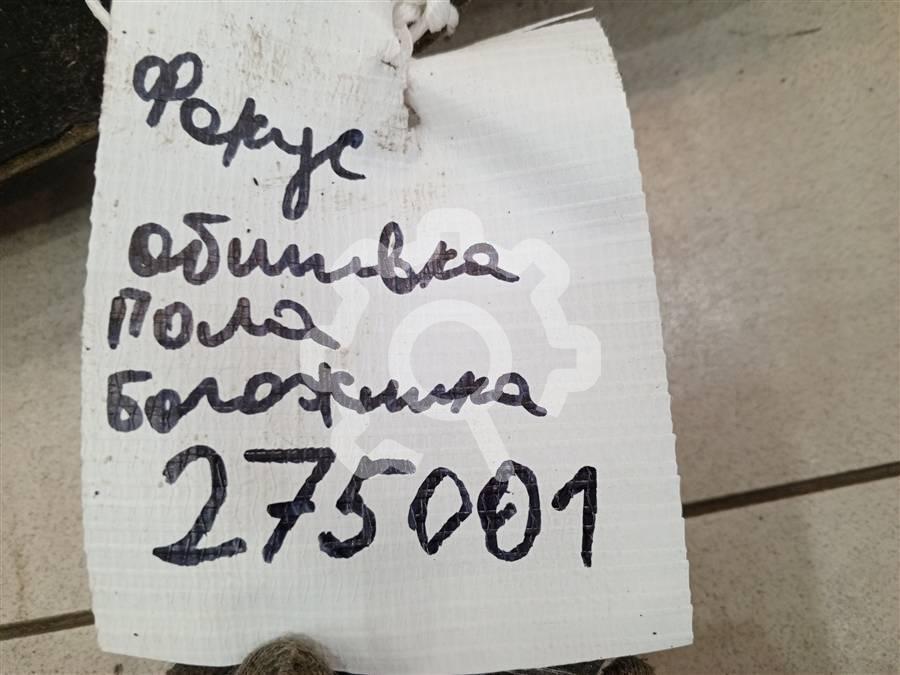 Фокус
обшивка
пола
багажника
275001